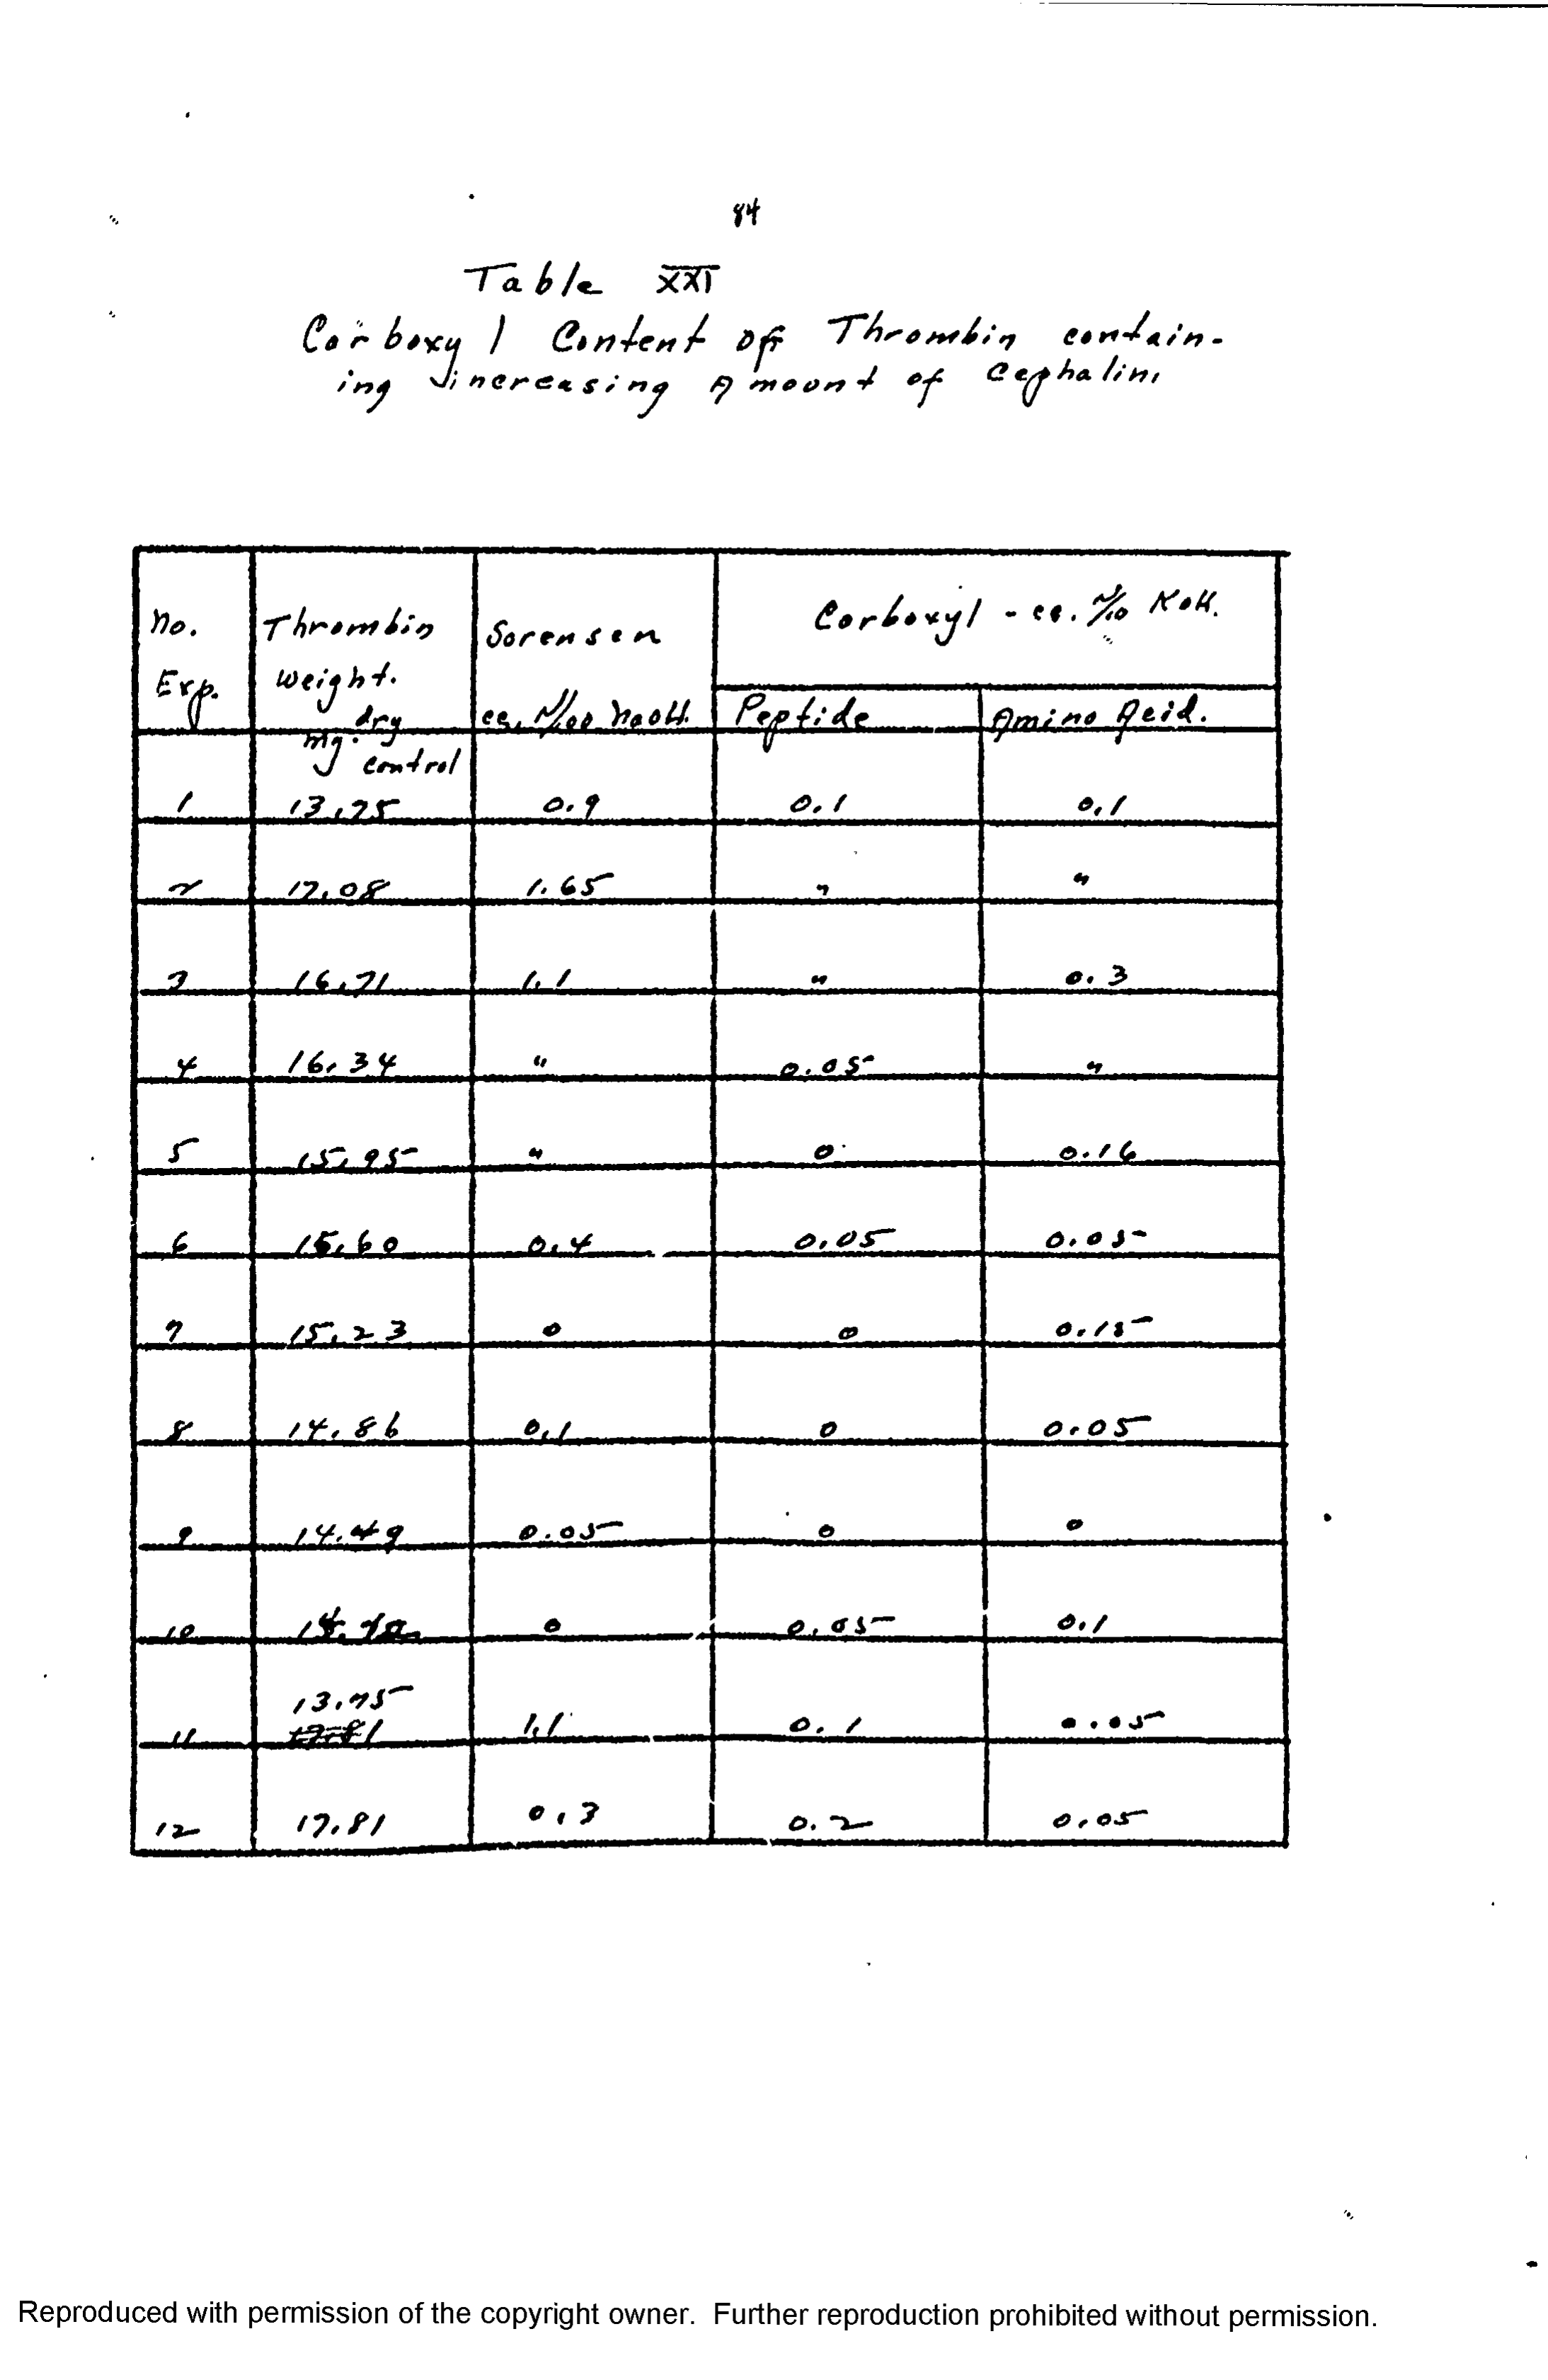 84
Table XXI
Carboxyl Content of Thrombin contain-
ing increasing Amount of Cephalin.
No. Exp. Thrombin weight. mg. dry Sorensen cc. N/100 NaOH. Carboxyl - cc. N/10 KOH.
Peptide Amino Acid.
control
1 13.75 0.9 0.1 0.1
2 17.08 1.65 " "
3 16.71 1.1 " 0.3
4 16.34 " 0.05 "
5 15.95 " 0 0.16
6 15.60 0.4 0.05 0.05
7 15.23 0 0 0.15
8 14.86 0.1 0 0.05
9 14.49 0.05 0 0
10 0 0.05 0.1
13.75
11 17.81 1.1 0.1 0.05
12 17.81 0.3 0.2 0.05
Reproduced with permission of the copyright owner. Further reproduction prohibited without permission.